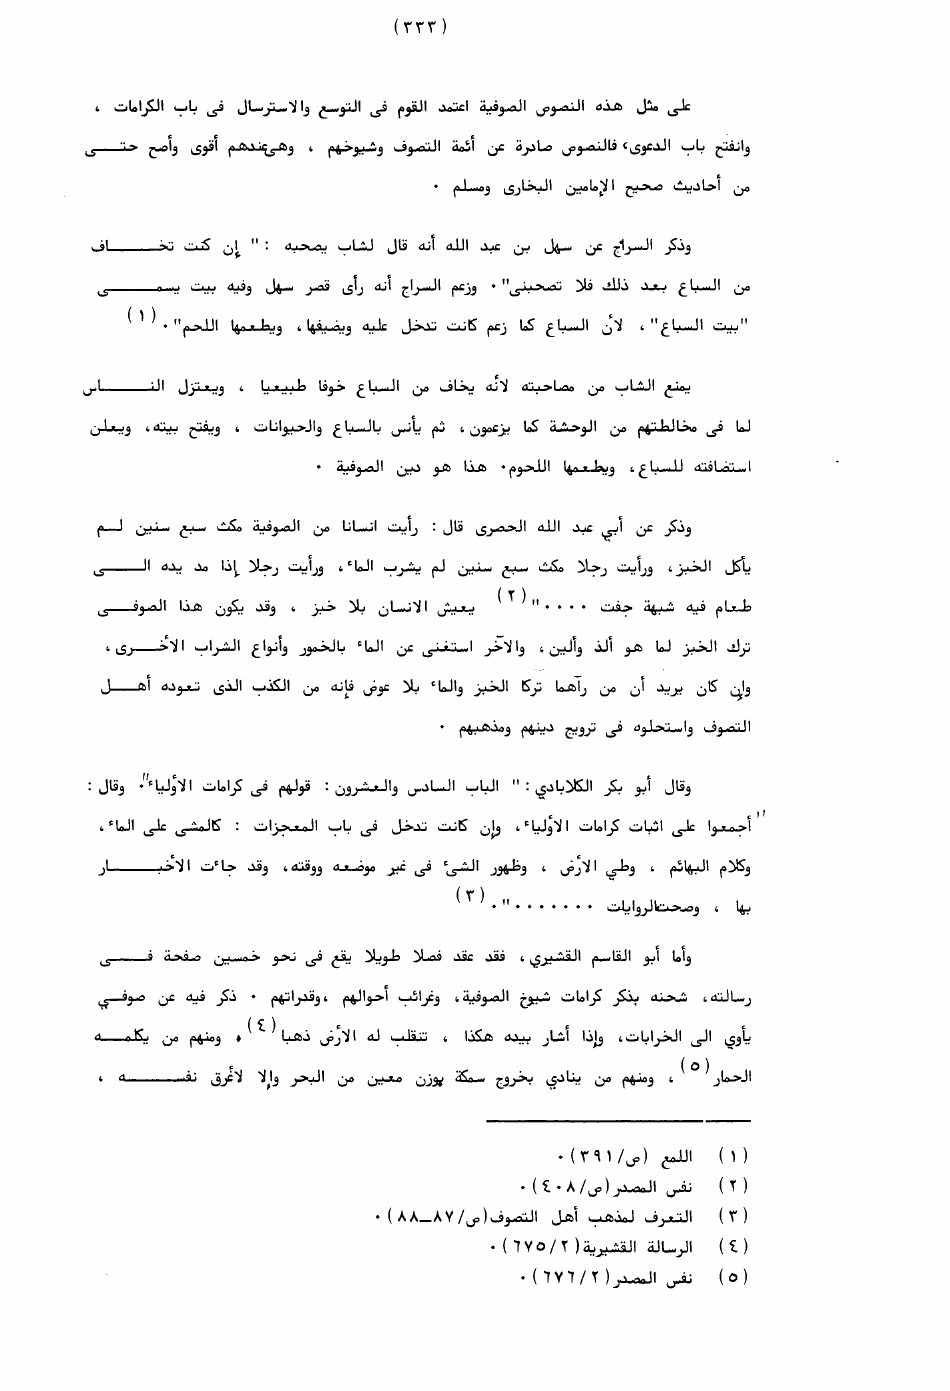 (٢٣٣)
على مثل هذه النصوص الصوفية اعتمد القوم فى التوسع والاسترسال فى باب الكرامات ،
وانفتح باب الدعوى، فالنصوص صادرة عن أئمة التصوف وشيوخهم ، وهى عندهم أقوى وأصح حتــى
من أحاديث صحيح الإمامين البخارى ومسلم ٠
وذكر السراج عن سهل بن عبد الله أنه قال لشاب يصحبه : " إن كنت تخــاف
من السباع بعد ذلك فلا تصحبنى"٠ وزعم السراج أنه رأى قصر سهل وفيه بيت يسمــى
"بيت السباع"، لأن السباع كما زعم كانت تدخل عليه ويضيفها، ويطعمها اللحم"٠(١)
يمنع الشاب من مصاحبته لأنه يخاف من السباع خوفا طبيعيا ، ويعتزل النــاس
لما فى مخالطتهم من الوحشة كما يزعمون، ثم يأنس بالسباع والحيوانات ، ويفتح بيته، ويعلن
استضافته للسباع، ويطعمها اللحوم٠ هذا هو دين الصوفية ٠
وذكر عن أبي عبد الله الحصرى قال : رأيت انسانا من الصوفية مكث سبع سنين لــم
يأكل الخبز، ورأيت رجلا مكث سبع سنين لم يشرب الماء، ورأيت رجلا إذا مد يده الــى
طعام فيه شبهة جفت ٠٠٠٠"(٢) يعيش الانسان بلا خبز ، وقد يكون هذا الصوفــى
ترك الخبز لما هو ألذ وألين، والآخر استغنى عن الماء بالخمور وأنواع الشراب الأخــرى،
وإن كان يريد أن من رآهما تركا الخبز والماء بلا عوض فإنه من الكذب الذى تعوده أهــل
التصوف واستحلوه فى ترويج دينهم ومذهبهم ٠
وقال أبو بكر الكلاباذي : " الباب السادس والعشرون : قولهم فى كرامات الأولياء"٠ وقال :
"أجمعوا على اثبات كرامات الأولياء، وإن كانت تدخل فى باب المعجزات : كالمشى على الماء،
وكلام البهائم ، وطي الأرض ، وظهور الشئ فى غير موضعه ووقته، وقد جاءت الأخبــار
بها ، وصحت الروايات ٠٠٠٠٠٠٠"٠(٣)
وأما أبو القاسم القشيري، فقد عقد فصلا طويلا يقع فى نحو خمسين صفحة فــى
رسالته، شحنه بذكر كرامات شيوخ الصوفية، وغرائب أحوالهم ،وقدراتهم ٠ ذكر فيه عن صوفــي
يأوي الى الخرابات، وإذا أشار بيده هكذا ، تنقلب له الأرض ذهبا(٤)، ومنهم من يكلمــه
الحمار(٥)، ومنهم من ينادي بخروج سمكة بوزن معين من البحر وإلا لأغرق نفســه ،
(١) اللمع (ص/٣٩١)٠
(٢) نفس المصدر(ص/٤٠٨)٠
(٣) التعرف لمذهب أهل التصوف(ص/٨٧ــ٨٨)٠
(٤) الرسالة القشيرية(٦٧٥/٢)٠
(٥) نفس المصدر(٦٧٦/٢)٠